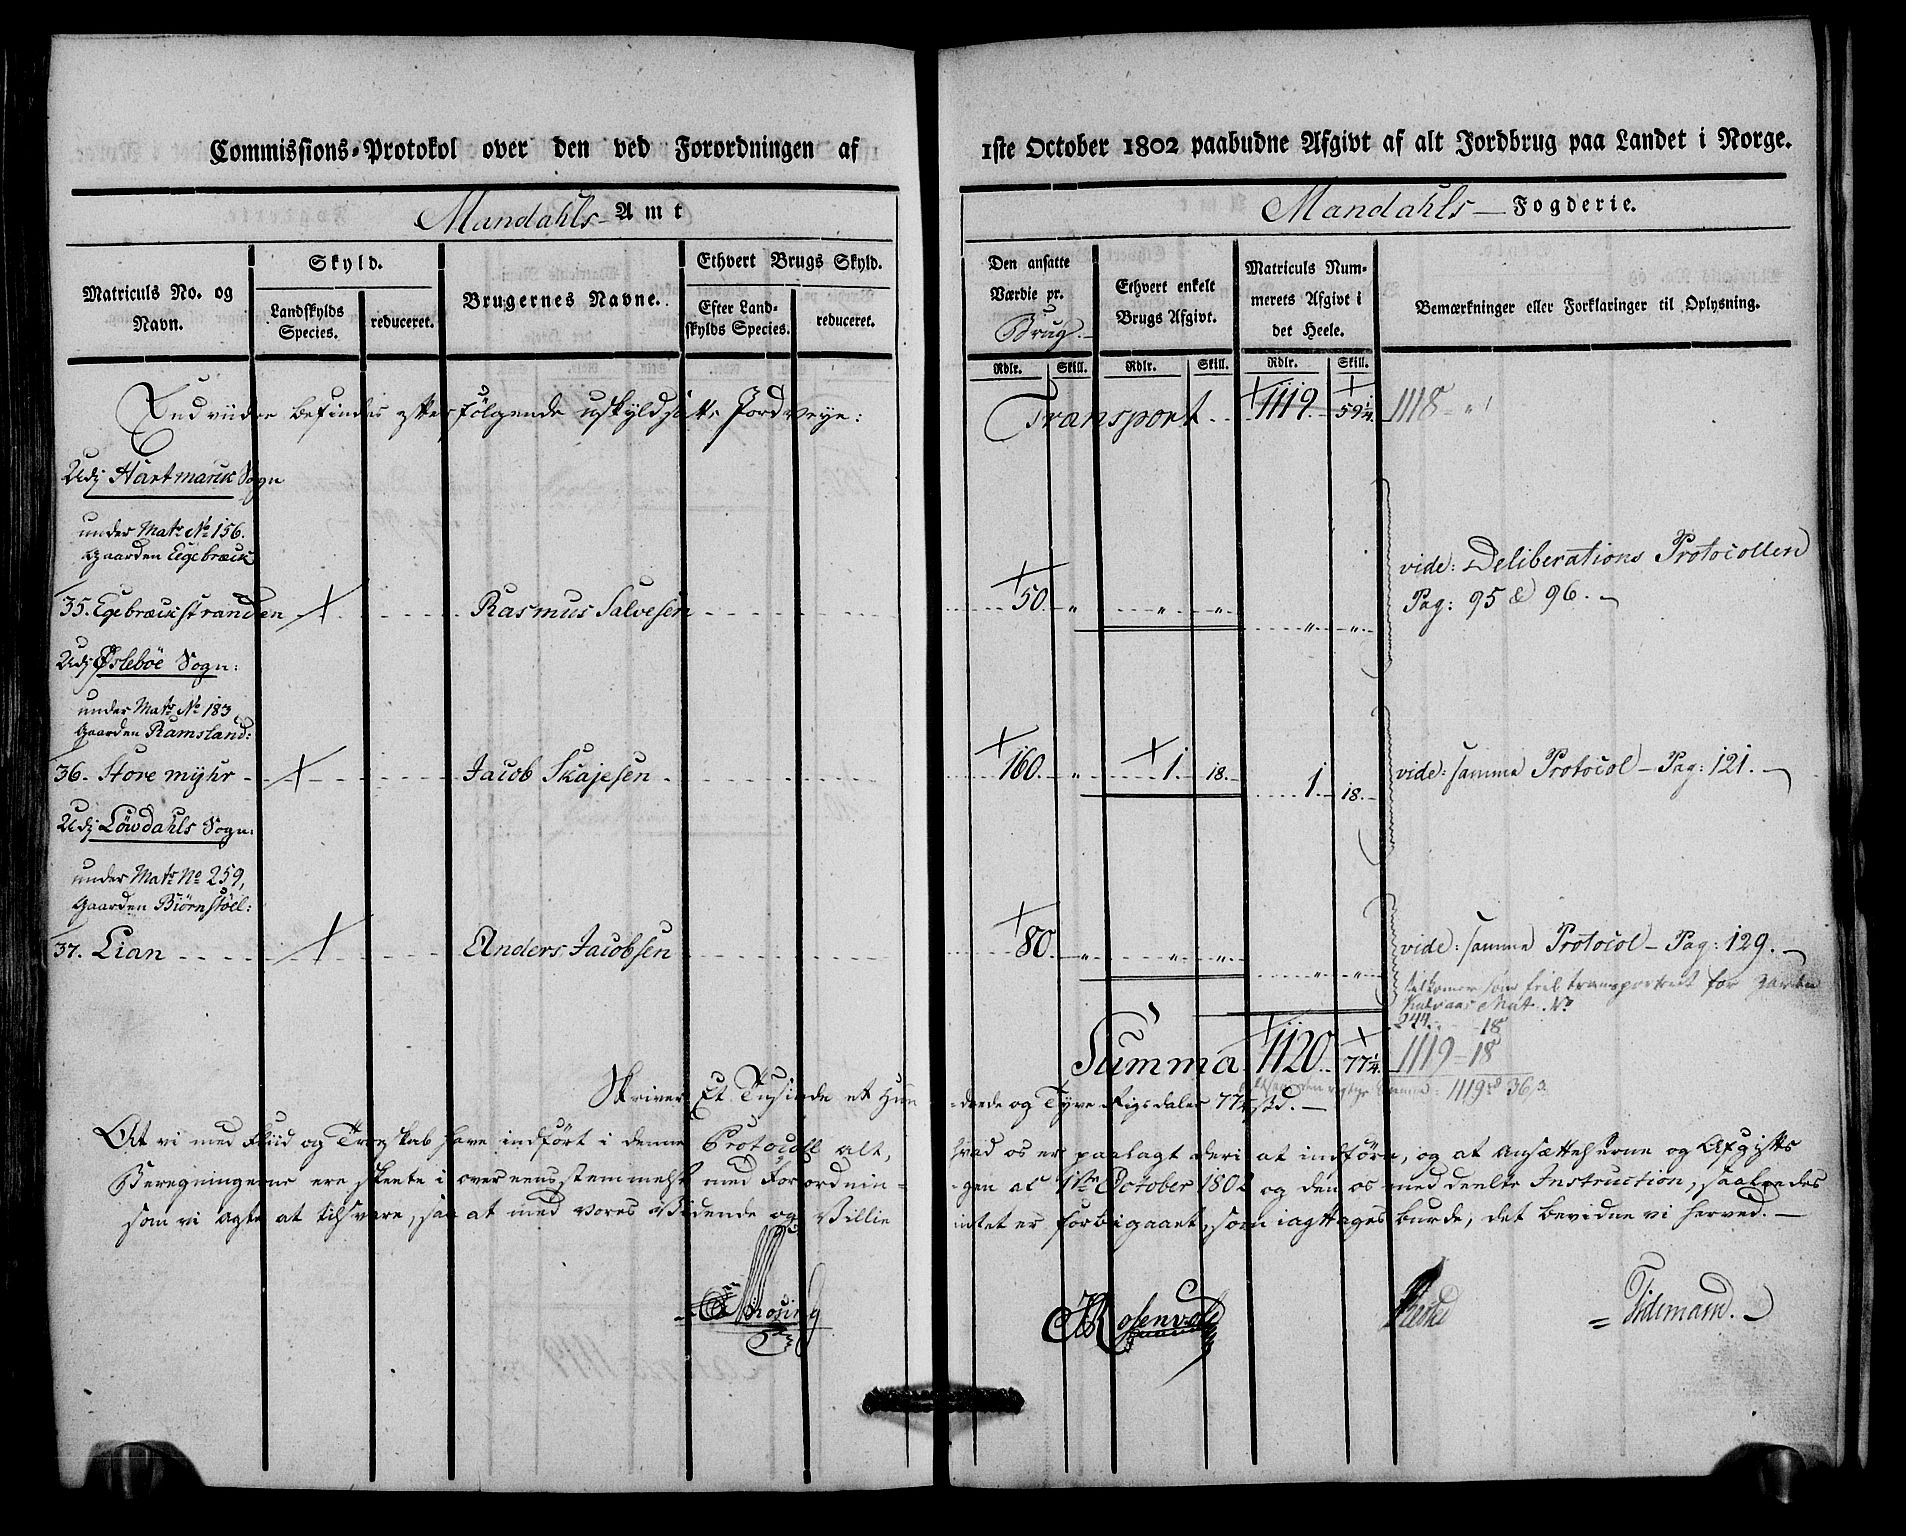 Commissions-Protokol over den ved Forordningen af
Mandahls Amt
Matriculs No. og Navn.
Skyld.
Landskylds Species.
reduceret.
Brugernes Navne.
Ethvert Brugs Skyld.
Efter Landskylds Species.
reduceret.
Endviidere befindes efterfölgende uskyldsatte Jordveye:
Udj Hartmarck Sogn
under Matr No 156.
Gaarden Eegebræck
35. Egebræckstranden Rasmus Salvesen
Udj Øslebøe Sogn:
under Matr No 183,
Gaarden Ramsland:
36. Store myhr Jacob Skajesen
Udj Löwdahls Sogn:
under Matr No 259,
Gaarden Biörnstöel:
37. Lian Anders Jacobsen
Skriver Et Tusinde et Hun-
At vi med Fliid og Troeskab have indført i denne Protocoll alt,
Beregningerne ere skeete i overeensstemmelse med Forordnin-
som vi agte at tilsvare, saa at med vores Vidende og Villie
1ste October 1802 paabudne Afgivt af alt Jordbrug paa Landet i Norge.
Mandahls Fogderie.
Den ansatte Værdie pr. Brug.
Ethvert enkelt Brugs Afgivt.
Matriculs Nummerets Afgivt i det Heele.
Bemærkninger eller Forklaringer til Oplysning.
Rdlr. Skill. Rdlr. Skill. Rdlr. Skill.
Transport 1119. 59 1/4. 1118
50. " " " " " vide: Deliberations Protocollen
Pag: 95 & 96.
160. " 1. 18. 1. 18. vide: samme Protocol - Pag: 121.
80. " " " " " vide: samme Protocol - Pag: 129.
som feil transporteret for Gaarden
Mat. No
244. 18
Summa 1120. 77 1/4. 1119-18
1119 36
drede og Tyve Rigsdaler 77 1/4 s. d.
hvad os er paalagt deri at indføre, og at Ansættelserne og Afgifts
gen af 1ste October 1802 og den os meddeelte Instruction, saaledes
intet er forbigaaet, som iagttages burde, det bevidne vi herved.
Rosenvold
Tidemand.